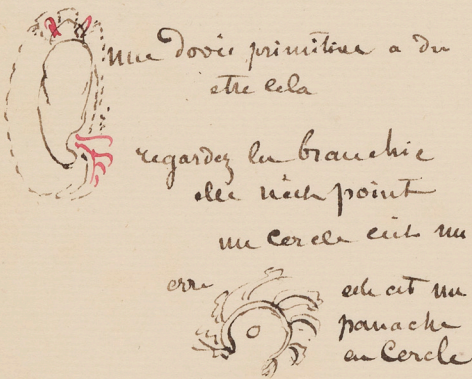 une doris primitive a du
etre cela
regardez la branchie
elle n'est point
un cercle c'est un
erre
elle est un
panache
en cercle